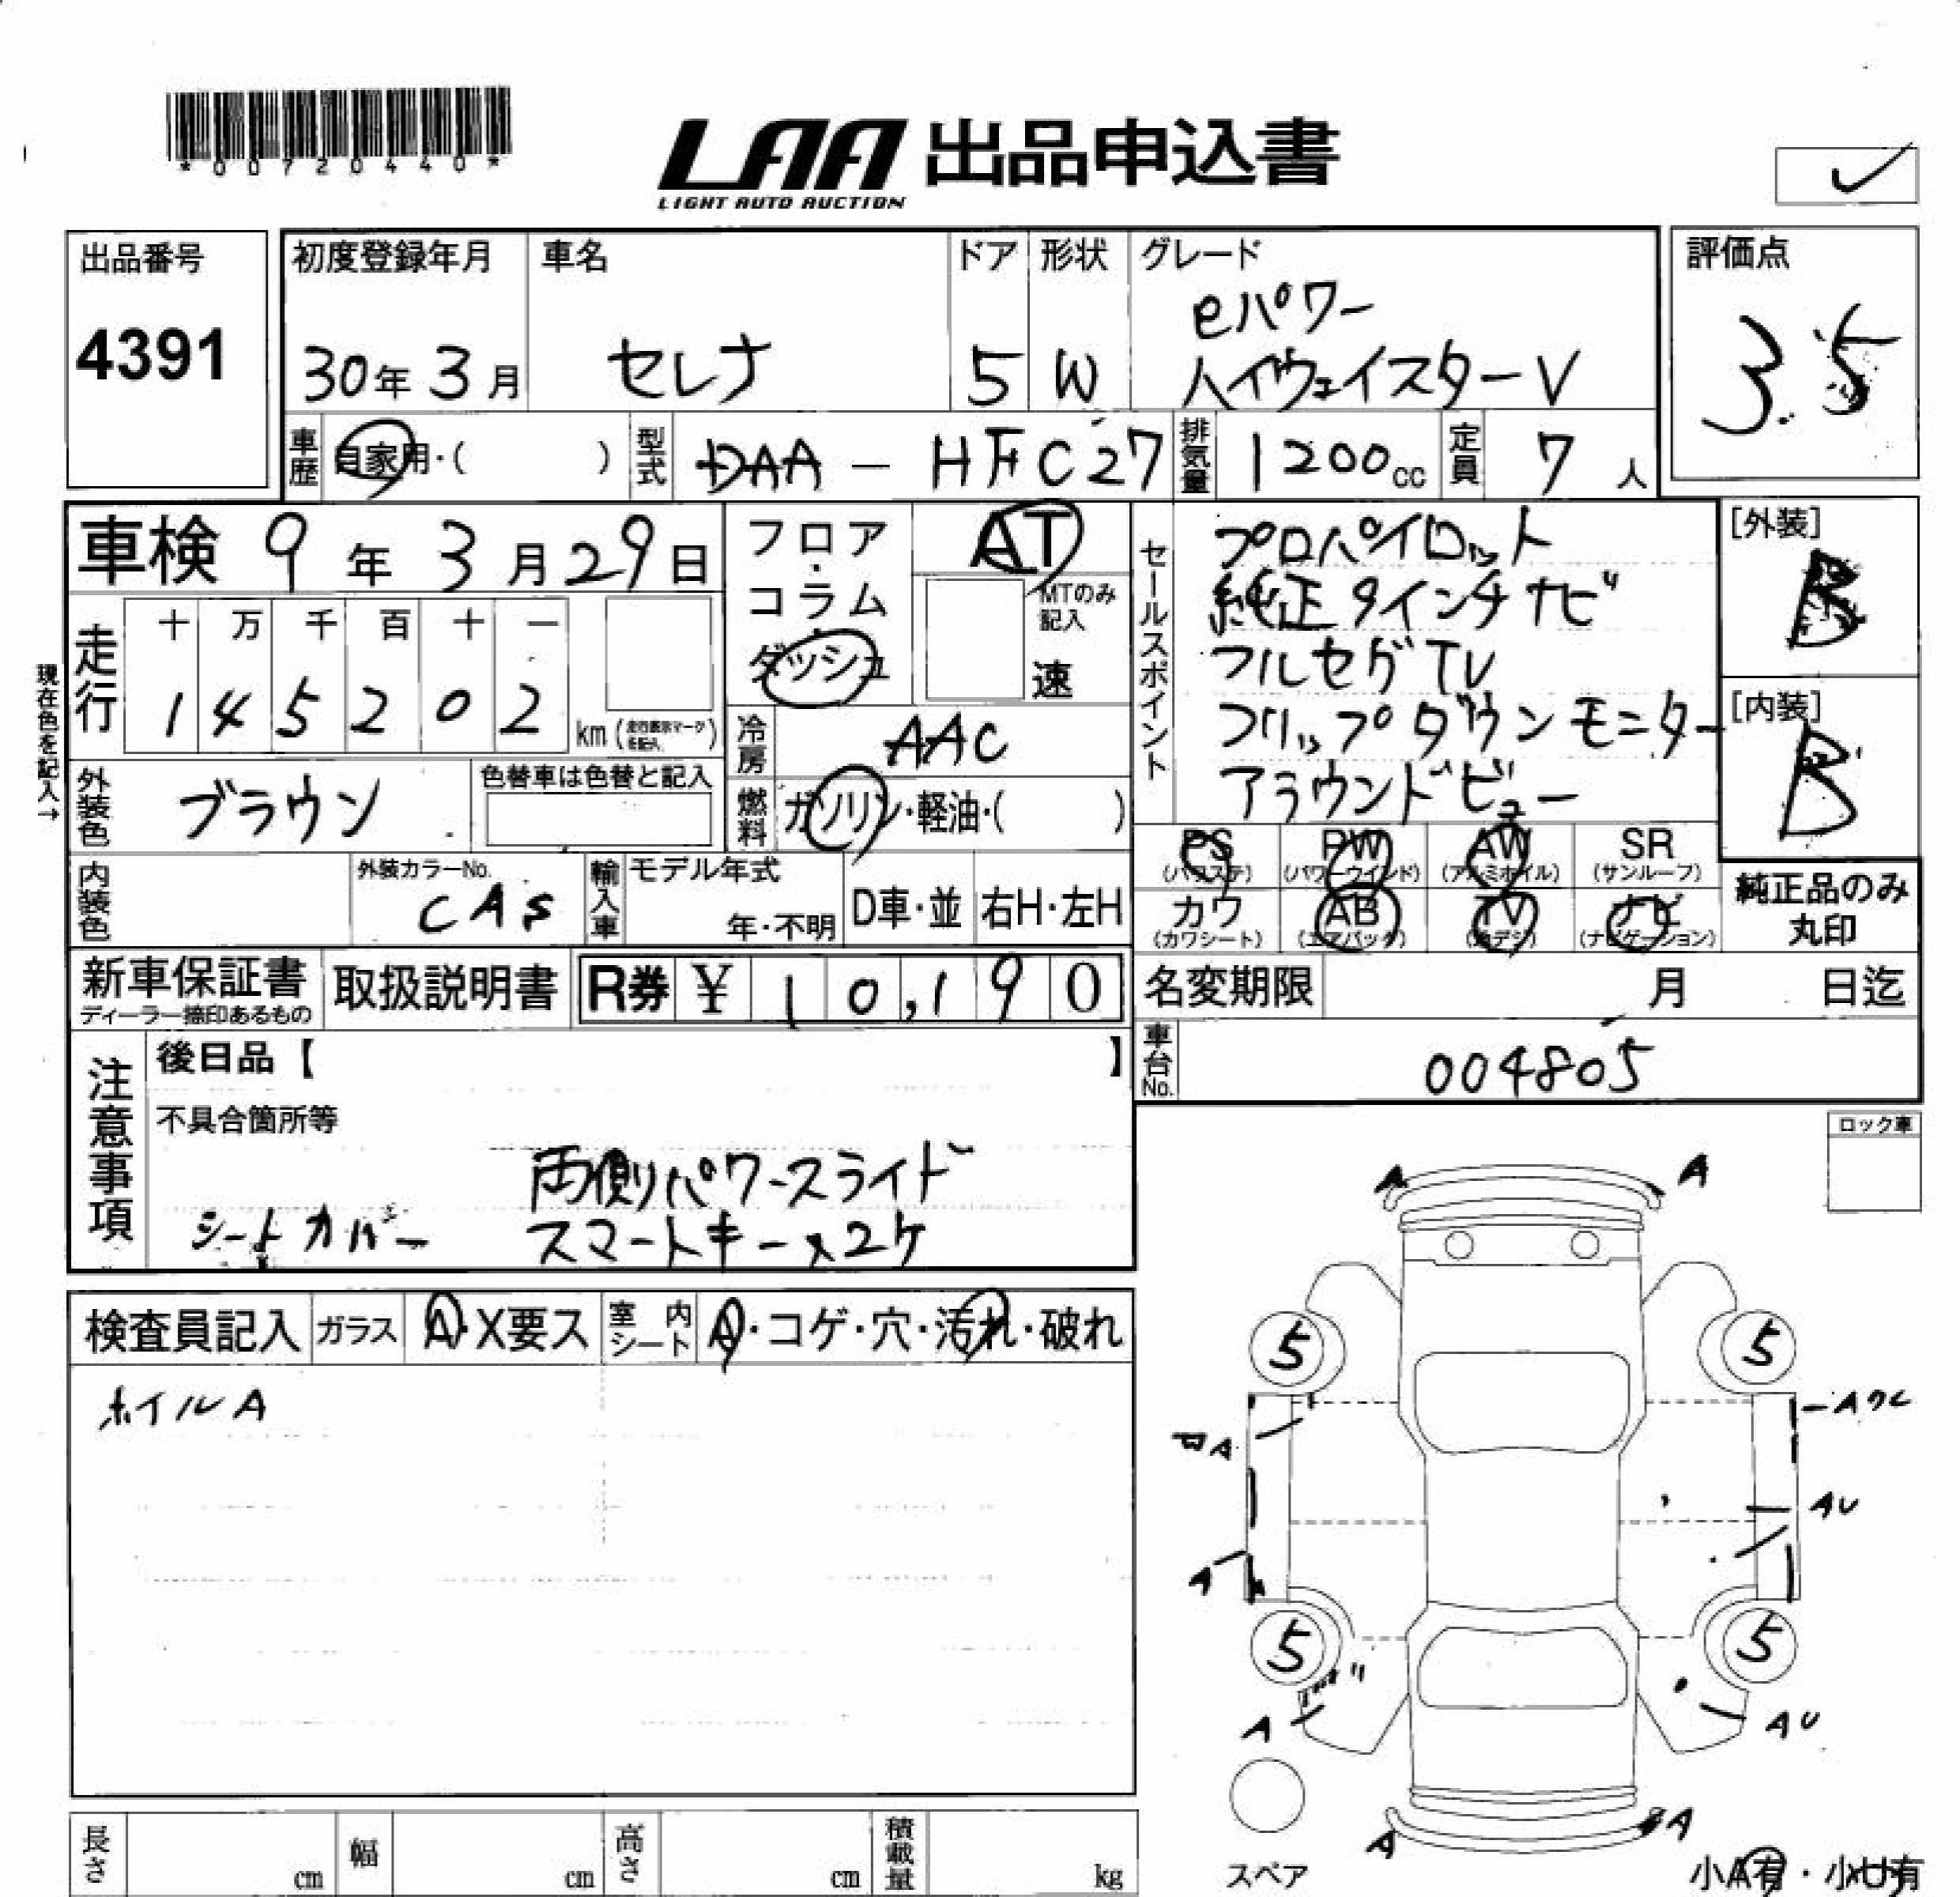 *00720440*
LAA 出品申込書
LIGHT AUTO AUCTION
出品番号
4391
初度登録年月
30年3月
車名
セレナ
ドア
5
形状
W
グレード
eパワー
ハイウェイスターV
評価点
3.5
車歴
自家用・( )
型式
DAA - HFC27
排気量
1200cc
定員
7人
車検 9年3月29日
フロア・コラム・ダッシュ
AT
MTのみ記入
速
セールスポイント
プロパイロット
純正9インチナビ
フルセグTV
フリップダウンモニター
アラウンドビュー
[外装]
B
[内装]
B
現在色を記入→
走行
十 万 千 百 十 一
1 4 5 2 0 2
km
冷房
AAC
燃料
ガソリン・軽油・( )
外装色
ブラウン
色替車は色替と記入
内装色
外装カラーNo.
CAS
輸入車
モデル年式
年・不明
D車・並
右H・左H
PS
(パワステ)
PW
(パワーウインド)
AW
(アルミホイル)
SR
(サンルーフ)
カワ
(カワシート)
AB
(エアバック)
TV
(地デジ)
ナビ
(ナビゲーション)
純正品のみ
丸印
新車保証書
ディーラー捺印あるもの
取扱説明書
R券 ¥10,190
名変期限 月 日迄
車台No.
004805
注意事項
後日品【 】
不具合箇所等
両側パワースライド
シートカバー スマートキー×2ケ
ロック車
検査員記入
ガラス A・X要ス
室内シート A・コゲ・穴・汚れ・破れ
ホイルA
A A
5 5
A
AU
A
5 5
A AU
A A
スペア
小A有・小U有
長さ cm
幅 cm
高さ cm
積載量 kg